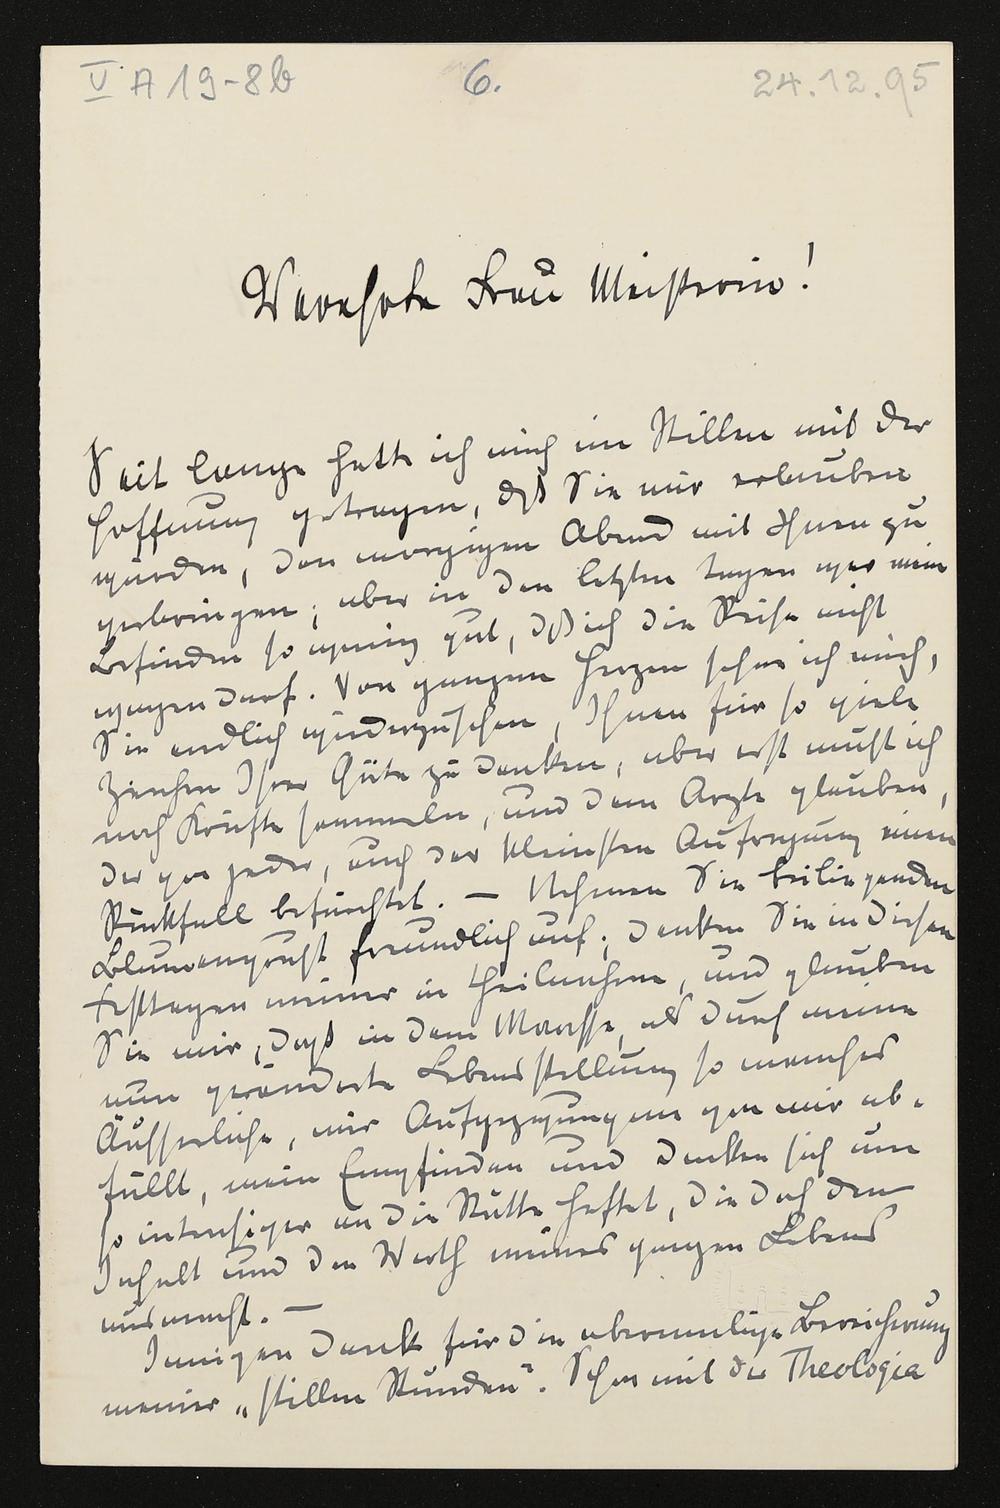 V A 19-8b 6. 24.12.95
Verehrte Frau Meisterin!
Seit lange hatte ich mich im Stillen mit der
Hoffnung getragen, daß Sie mir erlauben
würden, den morgigen Abend mit Ihnen zu
verbringen; aber in den letzten Tagen war mein
Befinden so wenig gut, daß ich die Reise nicht
wagen darf. Von ganzem Herzen sehne ich mich,
Sie endlich wiederzusehen, Ihnen für so viele
Zeichen Ihrer Güte zu danken, aber erst muß ich
noch Kräfte sammeln, und dem Arzte glauben,
der von jeder, auch der kleinsten Aufregung einen
Rückfall befürchtet. – Nehmen Sie beiliegenden
Blumengruß freundlich auf; denken Sie in diesen
Festtagen meiner in Theilnahme, und glauben
Sie mir, daß in dem Maasse, als durch meine
nun veränderte Lebensstellung so manches
Äußerliche, mir Aufgezwungene von mir ab-
fällt, mein Empfinden und Denken sich um
so intensiver an die Stätte heftet, die doch den
Inhalt und den Werth meines ganzen Lebens
ausmacht. –
Innigen Dank für die abermalige Bereicherung
meiner „stillen Stunden". Schon mit der Theologia